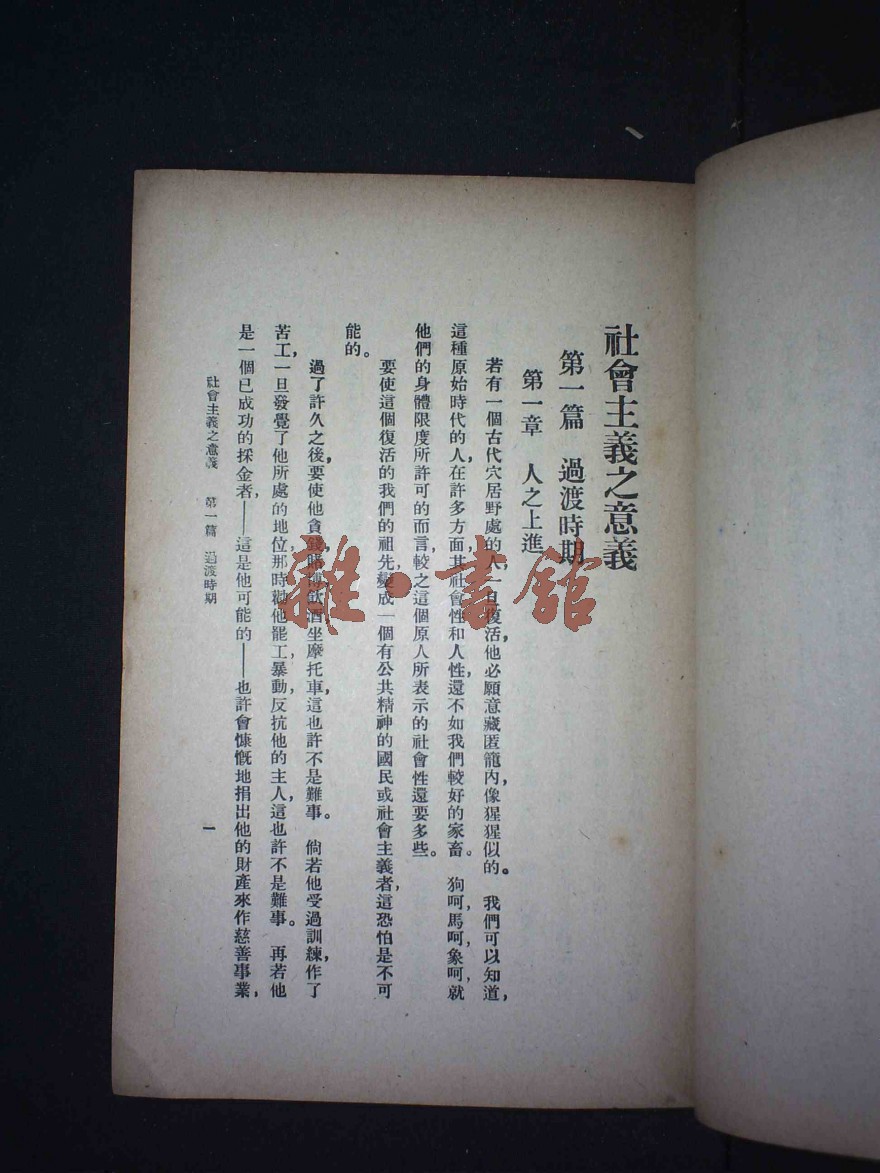 社會主義之意義
第一篇　過渡時期
第一章　人之上進
若有一個古代穴居野處的人，一旦復活，他必願意藏匿籠內，像猩猩似的。我們可以知道，
這種原始時代的人，在許多方面，其社會性和人性，還不如我們較好的家畜。狗呵，馬呵，象呵，就
他們的身體限度所許可的而言，較之這個原人所表示的社會性還要多些。
要使這個復活的我們的祖先，變成一個有公共精神的國民或社會主義者，這恐怕是不可
能的。
過了許久之後，要使他貪錢賭博飲酒坐摩托車，這也許不是難事。倘若他受過訓練，作了
苦工，一旦發覺了他所處的地位，那時勸他罷工暴動，反抗他的主人，這也許不是難事。再若他
是一個已成功的採金者，——這是他可能的——也許會慷慨地捐出他的財產來作慈善事業，
社會主義之意義　第一篇　過渡時期
一
雜·書館